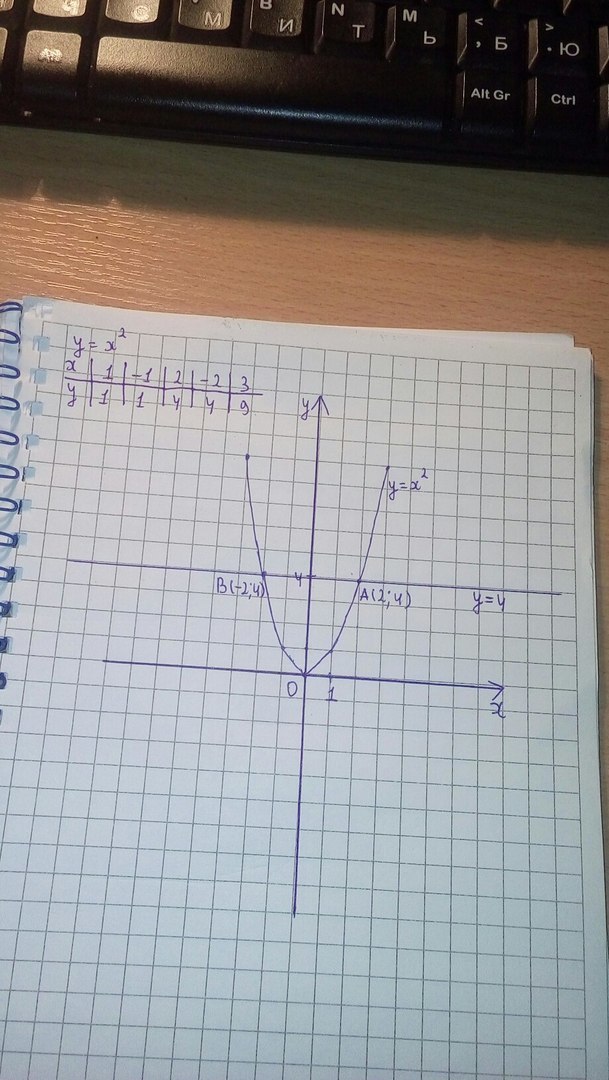 М
B И
N Т
M Ь
< , Б
> . Ю
Alt Gr
Ctrl
y = x²
x | 1 | -1 | 2 | -2 | 3
y | 1 | 1 | 4 | 4 | 9
y
y = x²
4
B(-2;4)
A(2;4)
y = 4
0
1
x